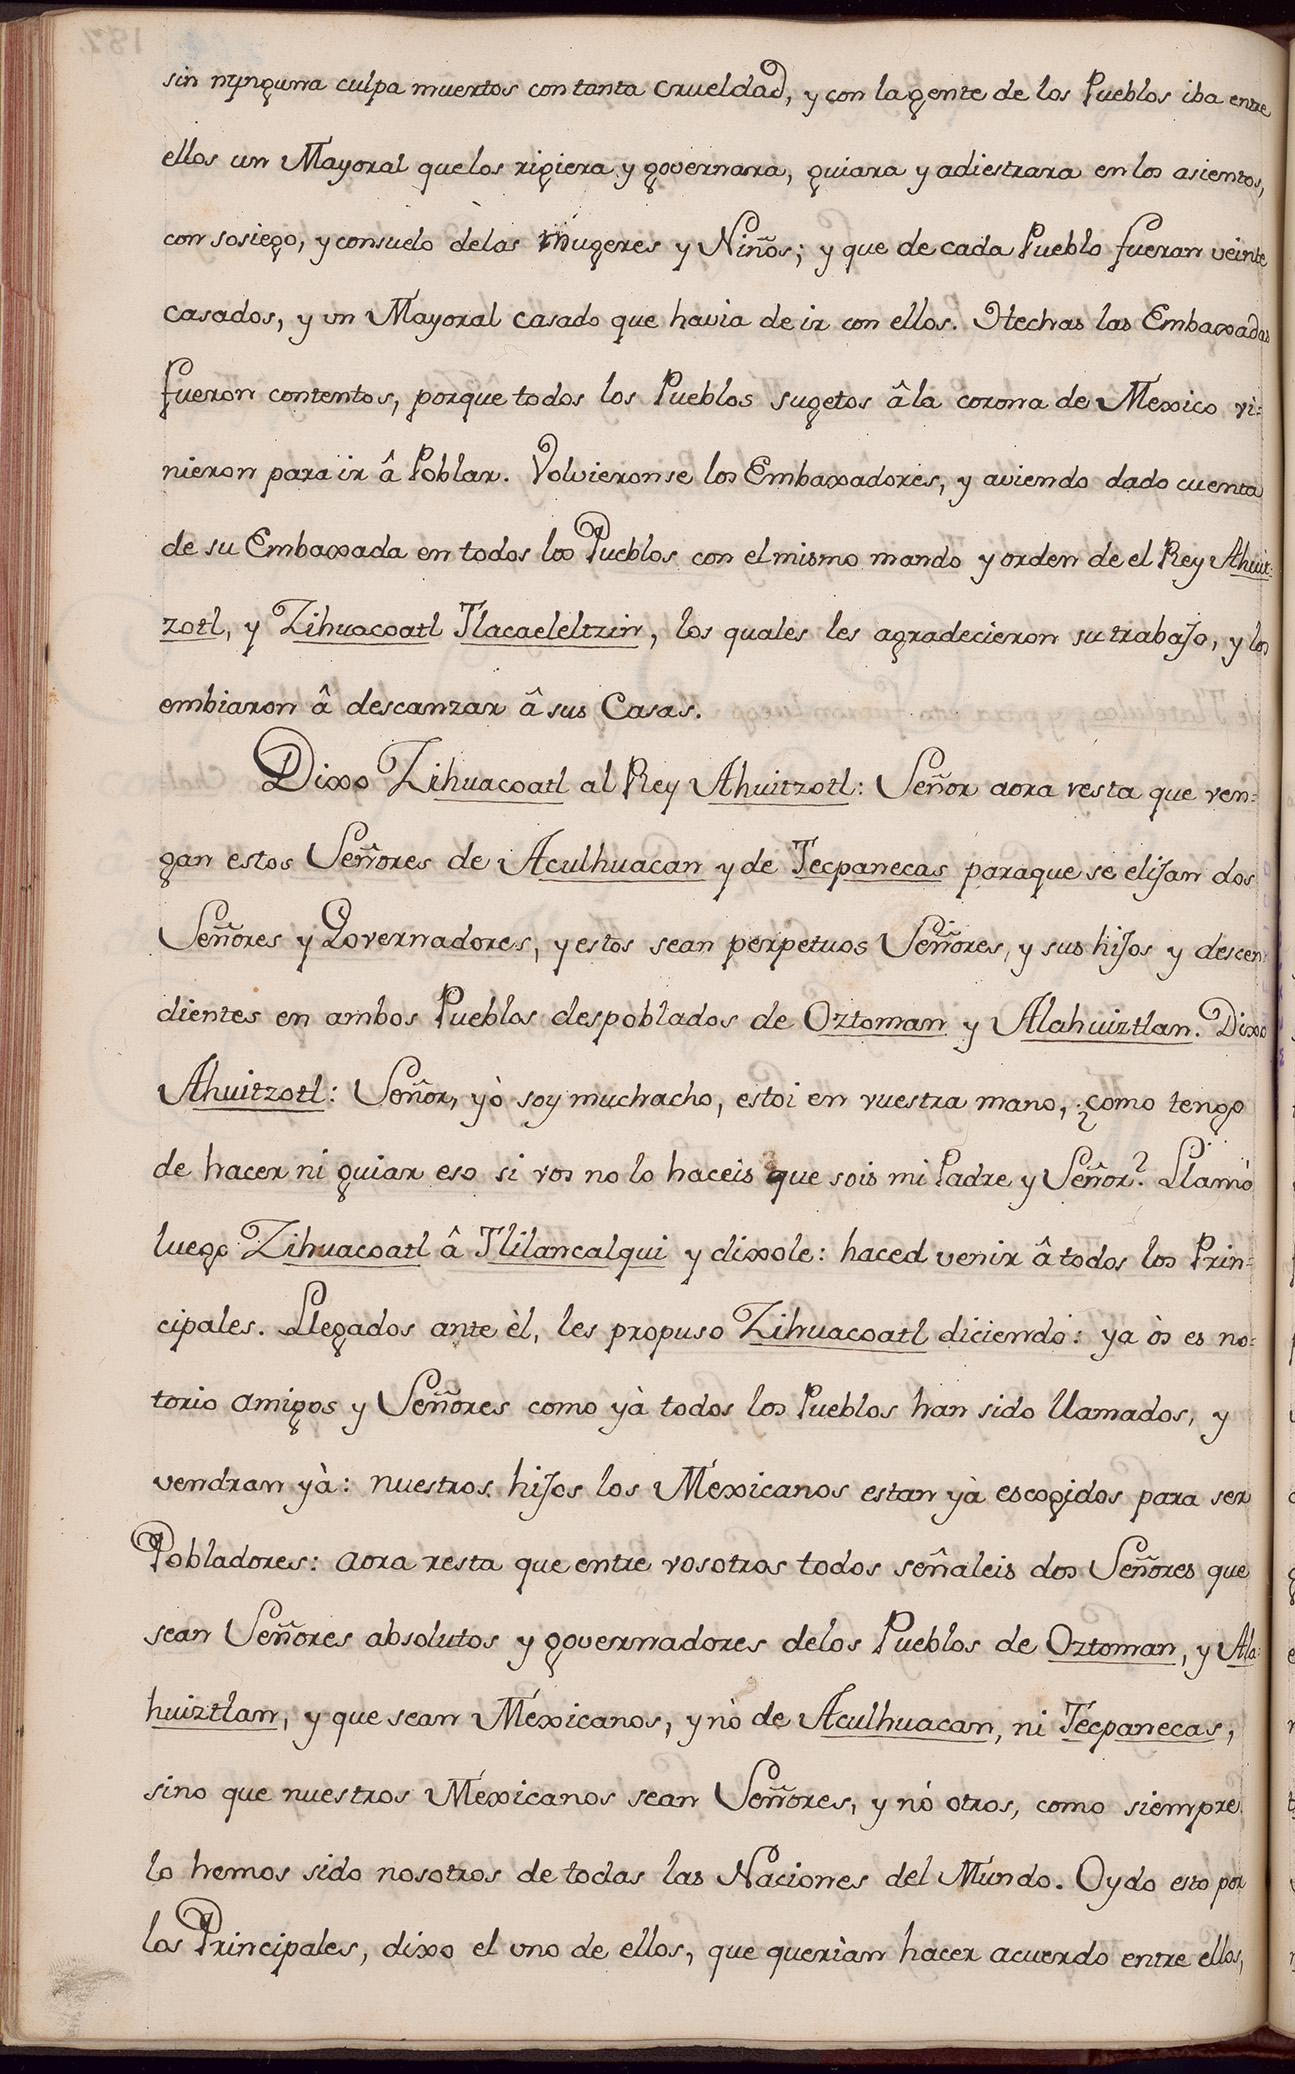 sin ningunna culpa muertos con tanta crueldad, y con la gente de los Pueblos iba entre
ellos un Mayoral que los rigiera y governara, guiara y adiestrara en los asientos,
con sosiego, y consuelo de las mugeres y Niños; y que de cada Pueblo fueran veinte
casados, y un Mayoral casado que havia de ir con ellos. Hechas las Embaxadas
fueron contentos, porque todos los Pueblos sugetos â la corona de Mexico vi=
nieron para ir â Poblar. Volvieronse los Embaxadores, y aviendo dado cuenta
de su Embaxada en todos los Pueblos con el mismo mando y orden de el Rey Ahuit=
zotl, y Zihuacoatl Tlacaeleltzin, los quales les agradecieron su trabajo, y los
embiaron â descanzar â sus Casas.
Dixo Zihuacoatl al Rey Ahuitzotl: Señor aora resta que ven=
gan estos Señores de Aculhuacan y de Tecpanecas paraque se elijan dos
Señores y Governadores, y estos sean perpetuos Señores, y sus hijos y descen=
dientes en ambos Pueblos despoblados de Oztoman y Alahuiztlan. Dixo
Ahuitzotl: Señor, yò soy muchacho, estoi en vuestra mano, ¿como tengo
de hacer ni guiar eso si vos no lo haceis que sois mi Padre y Señor? Llamò
luego Zihuacoatl â Tlilancalqui y dixole: haced venir â todos los Prin=
cipales. Llegados ante èl, les propuso Zihuacoatl diciendo: ya òs es no=
torio amigos y Señores como yà todos los Pueblos han sido llamados, y
vendran yà: nuestros hijos los Mexicanos estan yà escogidos para ser
Pobladores: aora resta que entre vosotros todos señaleis dos Señores que
sean Señores absolutos y governadores delos Pueblos de Oztoman, y Ala=
huiztlan, y que sean Mexicanos, y nò de Aculhuacan, ni Tecpanecas,
sino que nuestros Mexicanos sean Señores, y nò otros, como siempre
lo hemos sido nosotros de todas las Naciones del Mundo. Oydo esto por
los Principales, dixo el uno de ellos, que querian hacer acuerdo entre ellos,